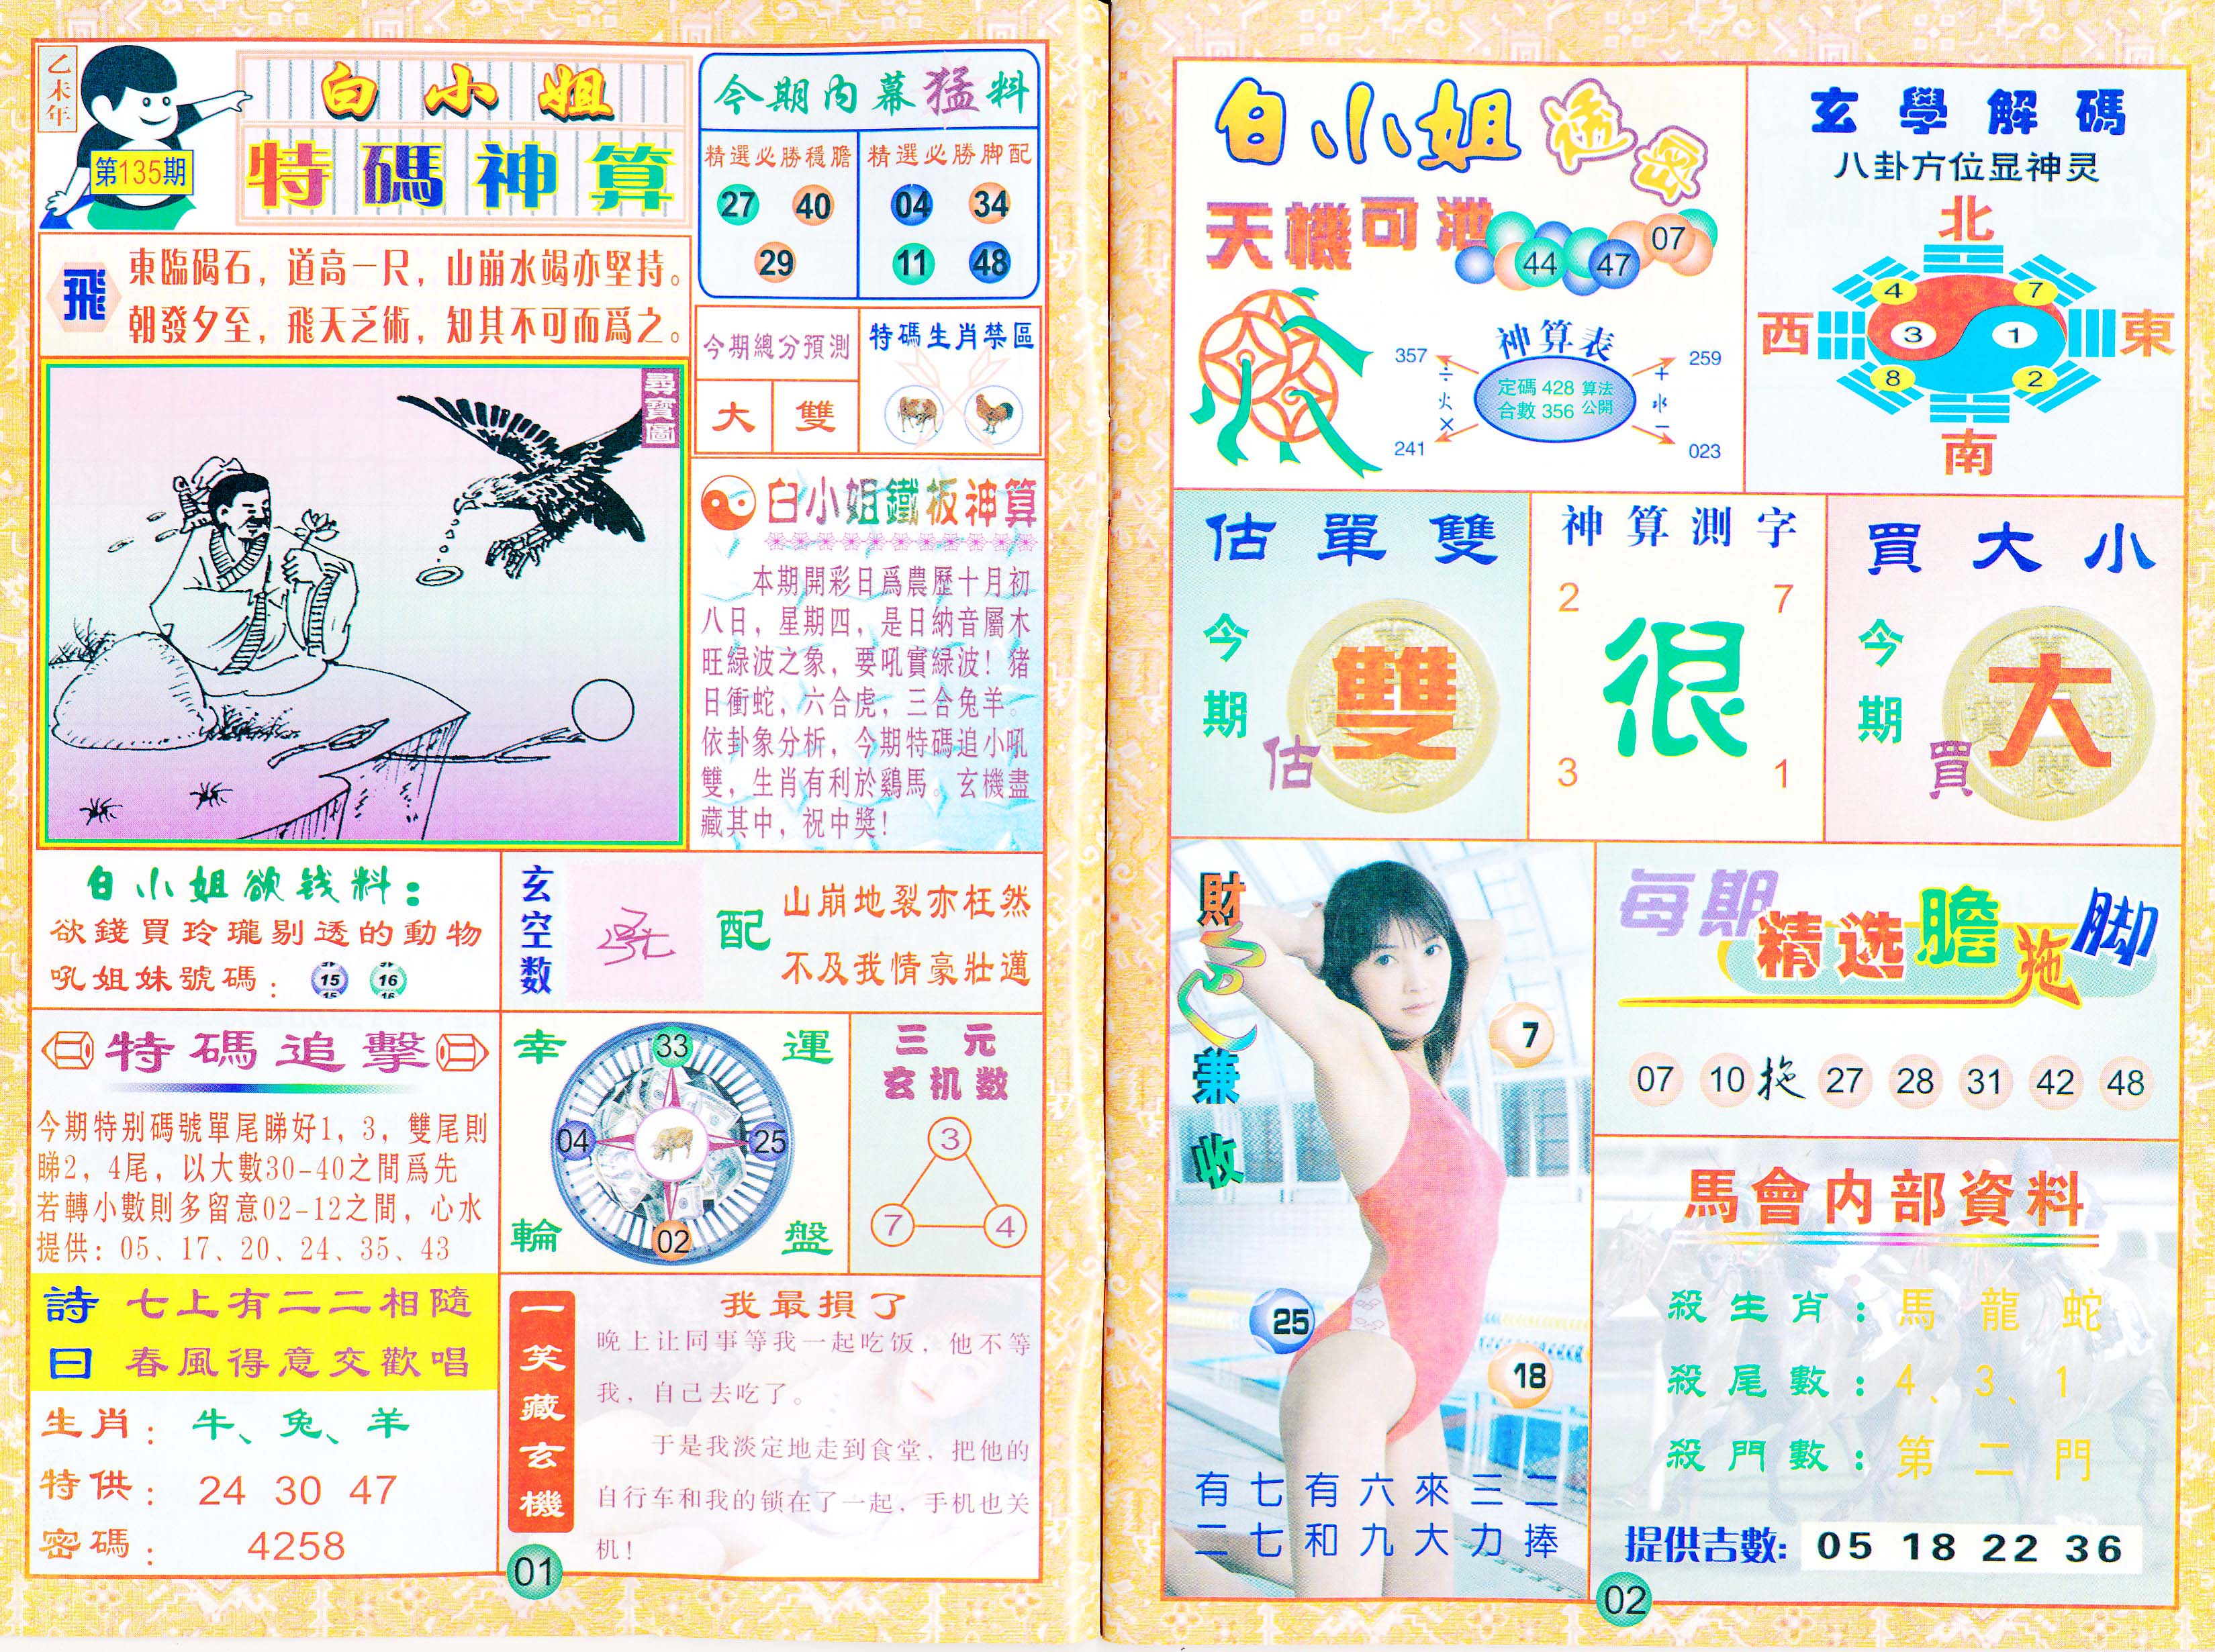 乙未年
第135期
白小姐
特碼神算
飛
東臨碣石，道高一尺，山崩水竭亦堅持。
朝發夕至，飛天乏術，知其不可而爲之。
尋寶圖
今期内幕猛料
精選必勝穩膽
27 40
29
精選必勝脚配
04 34
11 48
今期總分預測
大 雙
特碼生肖禁區
白小姐鐵板神算
本期開彩日爲農歷十月初
八日，星期四，是日納音屬木
旺緑波之象，要吼實緑波！猪
日衝蛇，六合虎，三合兔羊。
依卦象分析，今期特碼追小吼
雙，生肖有利於鷄馬。玄機盡
藏其中，祝中獎！
白小姐欲钱料：
欲錢買玲瓏剔透的動物
吼姐妹號碼： 15 16
玄空数
配
山崩地裂亦枉然
不及我情豪壯邁
特碼追擊
今期特别碼號單尾睇好1，3，雙尾則
睇2，4尾，以大數30-40之間爲先
若轉小數則多留意02-12之間，心水
提供：05、17、20、24、35、43
幸運輪盤
33
04 25
02
三元
玄机数
3
7 4
詩曰
七上有二二相隨
春風得意交歡唱
生肖： 牛、兔、羊
特供： 24 30 47
密碼： 4258
一笑藏玄機
我最損了
晚上让同事等我一起吃饭，他不等
我，自己去吃了。
于是我淡定地走到食堂，把他的
自行车和我的锁在了一起，手机也关
机！
01
白小姐透密
天機可泄
44 47 07
神算表
357 259
÷ 火 × + 水 −
定碼 428 算法
合數 356 公開
241 023
玄學解碼
八卦方位显神灵
北
4 7
西 3 1 東
8 2
南
估單雙
今期
估
雙
神算測字
2 7
很
3 1
買大小
今期
買
大
財色兼收
7
25
18
有七有六來三二
二七和九大力捧
每期精选膽拖脚
07 10 拖 27 28 31 42 48
馬會内部資料
殺生肖： 馬 龍 蛇
殺尾數： 4、3、1
殺門數： 第二門
提供吉數： 05 18 22 36
02